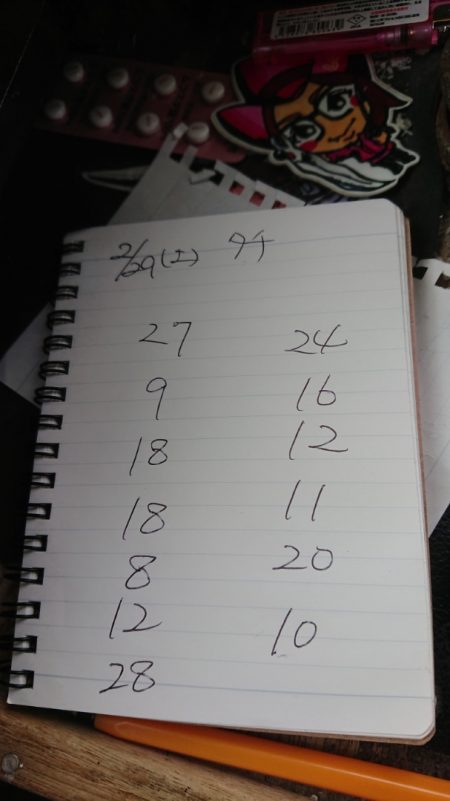 2/29(土)
27 24
9 16
18 12
18 11
8 20
12 10
28